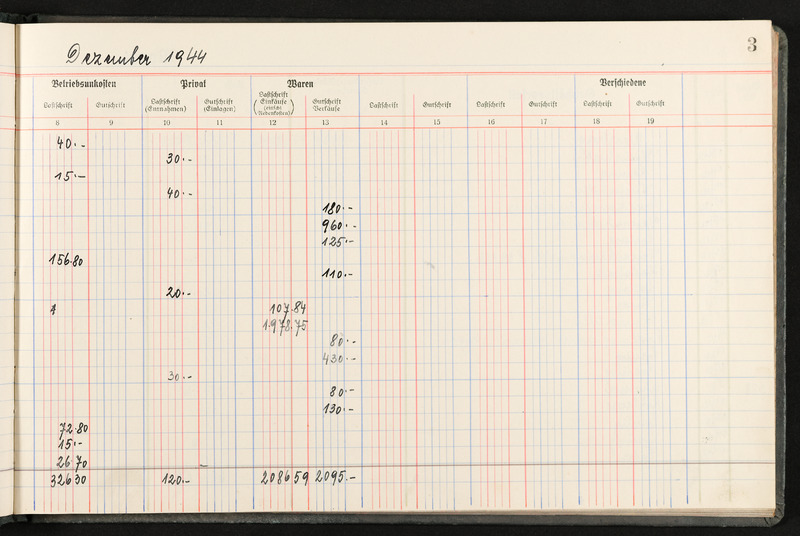 3
Dezember 1944
Betriebsunkosten Privat Waren Verschiedene
Lastschrift Gutschrift Lastschrift (Entnahmen) Gutschrift (Einlagen) Lastschrift Einkäufe (einschl. Nebenkosten) Gutschrift Verkäufe Lastschrift Gutschrift Lastschrift Gutschrift Lastschrift Gutschrift
8 9 10 11 12 13 14 15 16 17 18 19
40.-
30.-
15.-
40.-
180.-
960.-
125.-
156.80
110.-
20.-
107.84
1.978.75
80.-
430.-
30.-
80.-
130.-
72.80
15.-
26.70
326 30 120.- 2086 59 2095.-